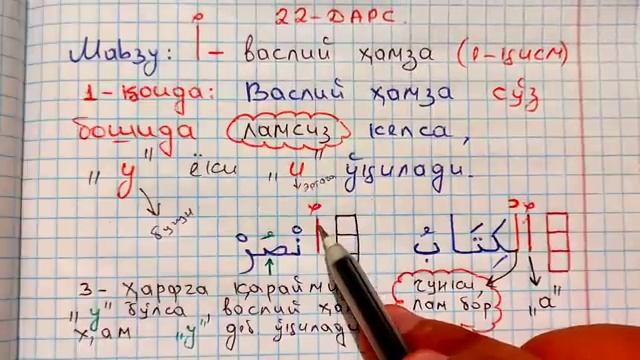 22-ДАРС.
Мавзу: ٱ - васлий ҳамза (1-қисм)
1-қоида: Васлий ҳамза сўз
бошида ламсиз келса,
"у" ёки "и" ўқилади.
ٱنْصُرْ ٱلْكِتَابُ
3-ҳарфга қарайми
"у" бўлса, васлий
ҳам "у" деб ўқилади
чунки, лам бор
"а"